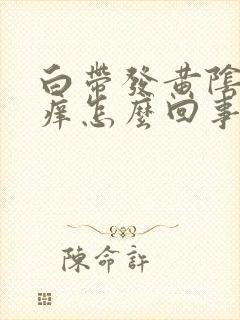 白帶發黃陰
痒怎麼回事
陳命許